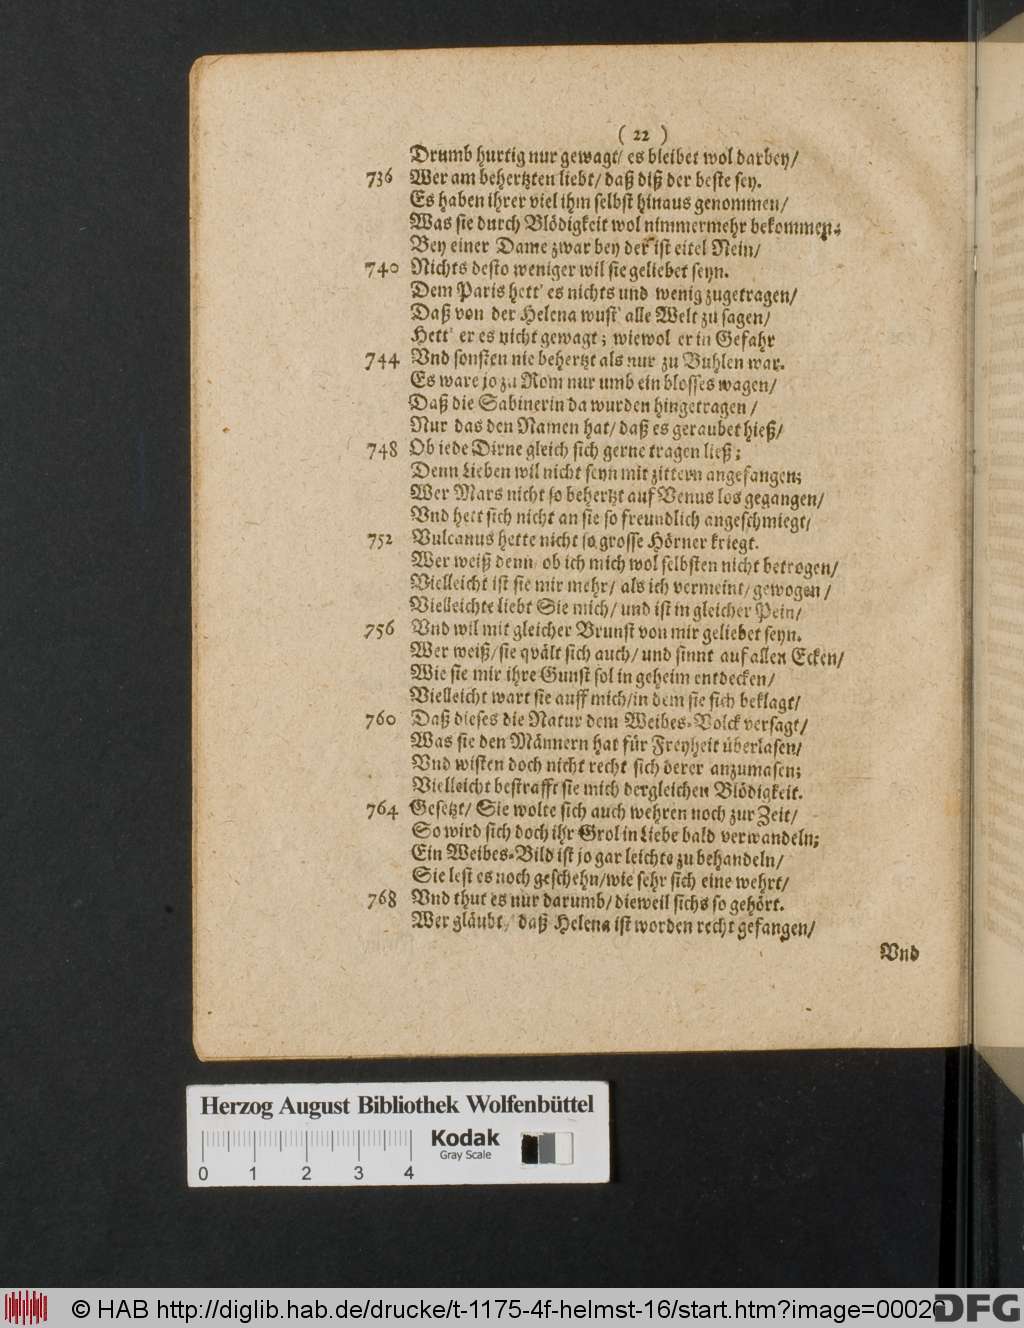 ( 22 )
Drumb hurtig nur gewagt/ es bleibet wol darbey/
736 Wer am behertzten liebt/ daß diß der beste sey.
Es haben ihrer viel ihm selbst hinaus genommen/
Was sie durch Blödigkeit wol nimmermehr bekommen.
Bey einer Dame zwar bey der ist eitel Nein/
740 Nichts desto weniger wil sie geliebet seyn.
Dem Paris hett' es nichts und wenig zugetragen/
Daß von der Helena wust' alle Welt zu sagen/
Hett' er es nicht gewagt; wiewol er in Gefahr
744 Vnd sonsten nie behertzt als nur zu Buhlen war.
Es ware jo zu Rom nur umb ein blosses wagen/
Daß die Sabinerin da wurden hingetragen/
Nur das den Namen hat/ daß es geraubet hieß/
748 Ob iede Dirne gleich sich gerne tragen ließ;
Denn Lieben wil nicht seyn mit zittern angefangen;
Wer Mars nicht so behertzt auf Venus los gegangen/
Vnd hett sich nicht an sie so freundlich angeschmiegt/
752 Vulcanus hette nicht so grosse Hörner kriegt.
Wer weiß denn/ ob ich mich wol selbsten nicht betrogen/
Vielleicht ist sie mir mehr/ als ich vermeint/ gewogen/
Vielleichte liebt Sie mich/ und ist in gleicher Pein/
756 Vnd wil mit gleicher Brunst von mir geliebet seyn.
Wer weiß/ sie qvält sich auch/ und sinnt auf allen Ecken/
Wie sie mir ihre Gunst sol in geheim entdecken/
Vielleicht wart sie auff mich/ in dem sie sich beklagt/
760 Daß dieses die Natur dem Weibes-Volck versagt/
Was sie den Männern hat für Freyheit überlasen/
Vnd wisten doch nicht recht sich derer anzumasen;
Vielleicht bestrafft sie mich dergleichen Blödigkeit.
764 Gesetzt/ Sie wolte sich auch wehren noch zur Zeit/
So wird sich doch ihr Grol in Liebe bald verwandeln;
Ein Weibes-Bild ist jo gar leichte zu behandeln/
Sie lest es noch geschehn/ wie sehr sich eine wehrt/
768 Vnd thut es nur darumb/ dieweil sichs so gehört.
Wer gläubt/ daß Helena ist worden recht gefangen/
Vnd
Herzog August Bibliothek Wolfenbüttel
Kodak
Gray Scale
0 1 2 3 4
© HAB http://diglib.hab.de/drucke/t-1175-4f-helmst-16/start.htm?image=00020
DFG